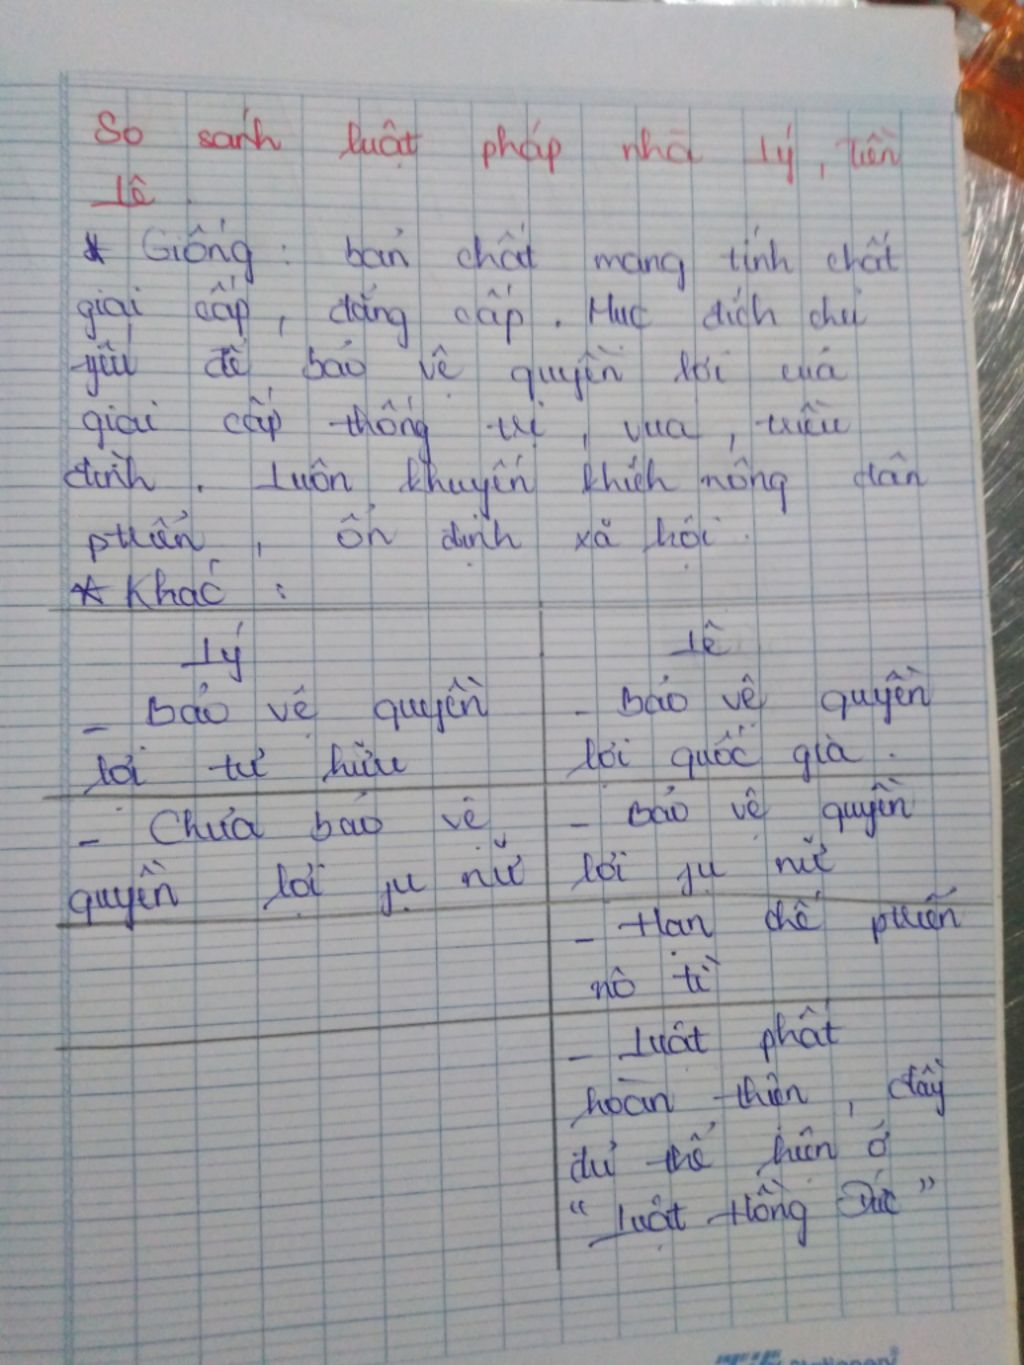 So sánh luật pháp nhà Lý, Tiền
Lê
* Giống: bản chất mang tính chất
giai cấp, đẳng cấp. Mục đích chủ
yếu để bảo vệ quyền lợi của
giai cấp thống trị, vua, triều
đình. Luôn khuyến khích nông dân
, ổn định xã hội.
* Khác:
Lý
Lê
- Bảo vệ quyền
lợi tư hữu
- Bảo vệ quyền
lợi quốc gia.
- Chưa bảo vệ
quyền lợi phụ nữ
- Bảo vệ quyền
lợi phụ nữ
- Hạn chế
nô tì
- Luật phát
hoàn thiện, đầy
đủ thể hiện ở
“Luật Hồng Đức”